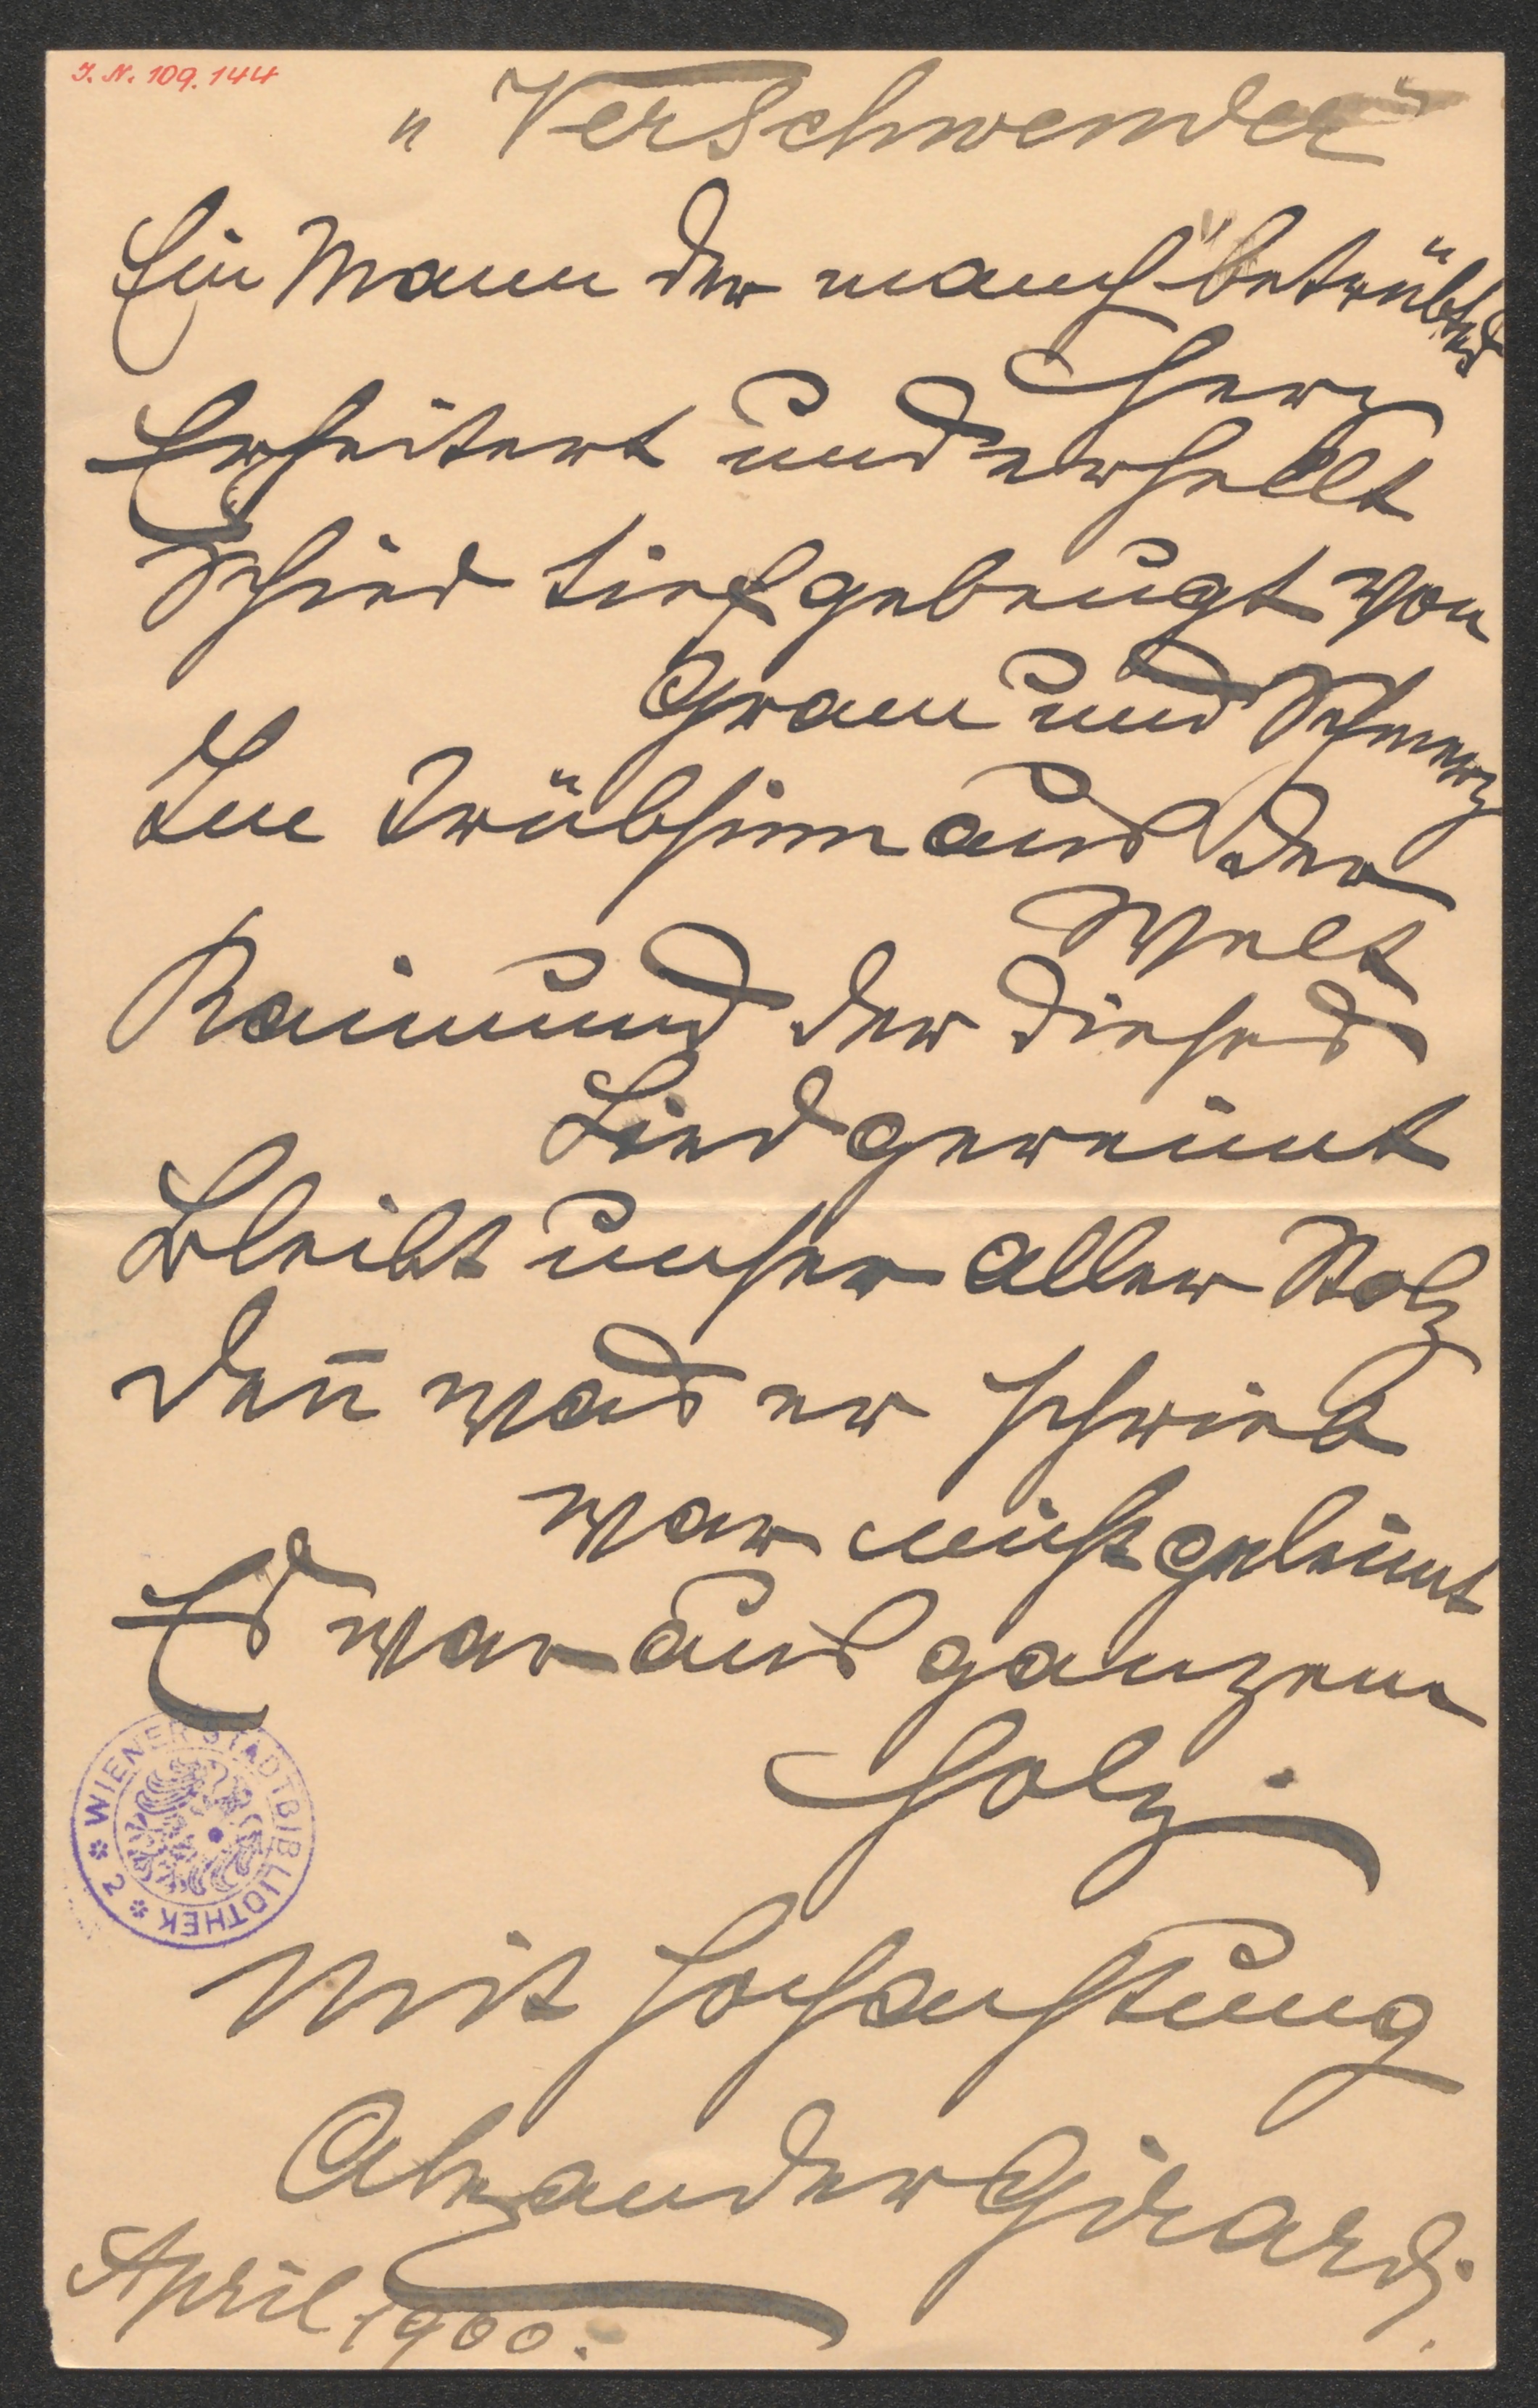 J. N. 109.144
„Verschwender"
Ein Mann der manch betrübtes
Herz
Erheitert und erhellt
Schied tiefgebeugt von
Gram und Schmerz
Im Trübsinn aus der
Welt
Raimund der dieses
Lied gereimt
Bleibt unser aller Stolz
Den̄ was er schrieb
war nicht geleimt
Es war aus ganzem
Holz.
Mit Hochachtung
Alexander Girardi.
April 1900.
WIENER STADTBIBLIOTHEK * 2 *